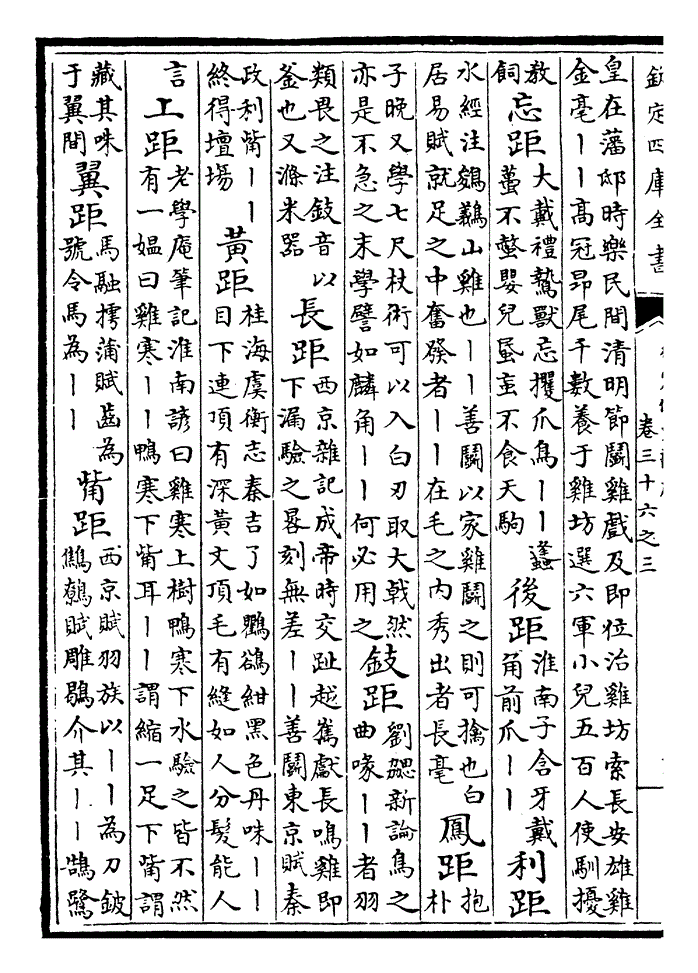 欽定四庫全書
卷三十六之三
皇在藩邸時樂民間清明節鬭雞戲及即位治雞坊索長安雄雞
金毫丨丨高冠昂尾千數養于雞坊選六軍小兒五百人使馴擾
教
飼
忘距
大戴禮鷙獸忘攫爪鳥丨丨蠭
蠆不螫嬰兒蟁䖟不食天駒
後距
淮南子含牙戴
角前爪丨丨
利距
水經注鵕鸃山雞也丨丨善鬭以家雞鬭之則可擒也白
居易賦就足之中奮發者丨丨在毛之內秀出者長毫
鳳距
抱
朴
子晚又學七尺杖術可以入白刃取大戟然
亦是不急之末學譬如麟角丨丨何必用之
鈘距
劉勰新論鳥之
曲喙丨丨者羽
類畏之注鈘音以
釜也又滌米器
長距
西京雜記成帝時交趾越雋獻長鳴雞即
下漏驗之晷刻無差丨丨善鬭東京賦秦
政利觜丨丨
終得壇場
黃距
桂海虞衡志秦吉了如鸜鵒紺黑色丹咮丨丨
目下連頂有深黃文頂毛有縫如人分髮能人
言
上距
老學庵筆記淮南諺曰雞寒上樹鴨寒下水驗之皆不然
有一媼曰雞寒丨丨鴨寒下觜耳丨丨謂縮一足下觜謂
藏其咮
于翼間
翼距
馬融摴蒲賦齒為
號令馬為丨丨
觜距
西京賦羽族以丨丨為刀鈹
鷦鷯賦雕鶡介其丨丨鵠鷺